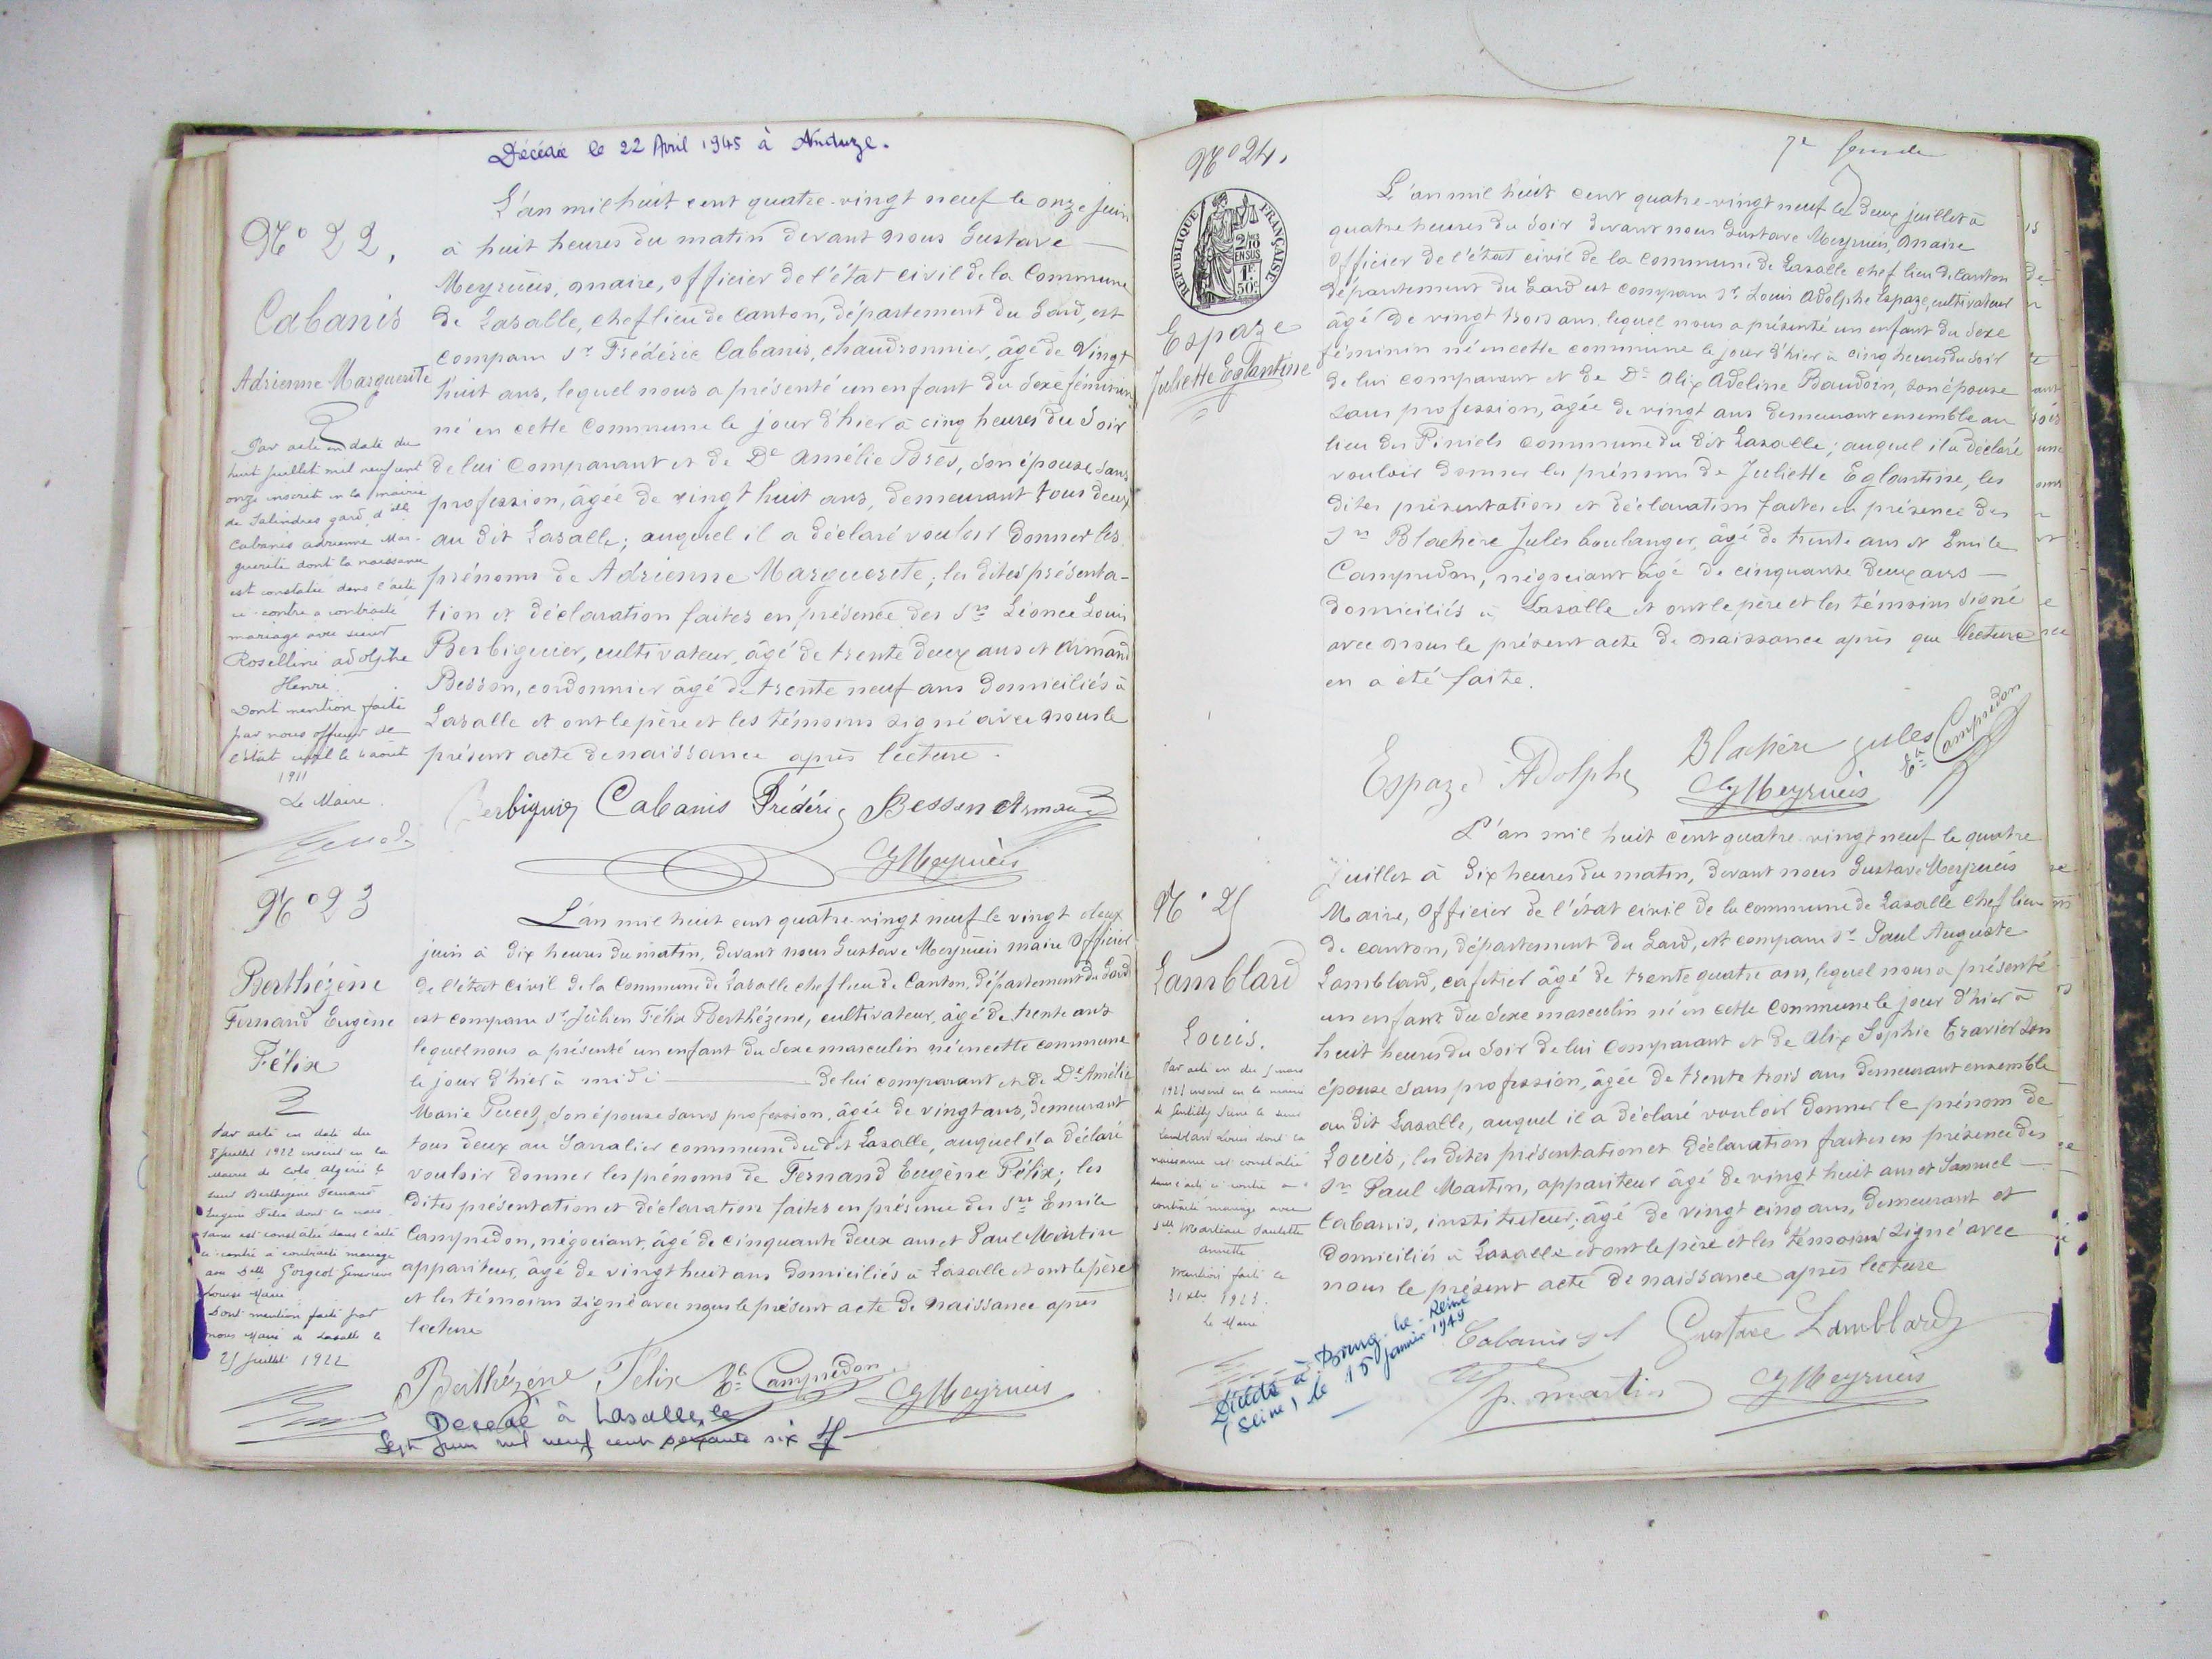 Décédée le 22 Avril 1945 à Anduze.
N° 22,
Cabanis
Adrienne Marguerite
Par acte en date du
huit juillet mil neuf cent
onze inscrit en la mairie
de Salindres gard, dlle
Cabanis adrienne Mar-
guerite dont la naissance
est constatée dans l'acte
ci-contre a contracté
mariage avec sieur
Rosellini adolphe
Henri.
Dont mention faite
par nous officier de
l'état civil le 6 août
1911
Le Maire.
L'an mil huit cent quatre-vingt neuf le onze juin
à huit heures du matin devant nous Gustave
Meyrueis, maire, officier de l'état civil de la Commune
de Lasalle, chef lieu de canton, département du Gard, est
comparu Sr Frédéric Cabanis, chaudronnier, âgé de Vingt
huit ans, lequel nous a présenté un enfant du sexe féminin
né en cette Commune le jour d'hier à cinq heures du soir
de lui Comparant et de De Amélie Borès, son épouse, sans
profession, âgée de vingt huit ans, demeurant tous deux
au dit Lasalle; auquel il a déclaré vouloir donner les
prénoms de Adrienne Marguerite; les dites présenta-
tion et déclaration faites en présence des Srs Léonce Louis
Berbiguier, cultivateur, âgé de trente deux ans et Armand
Besson, cordonnier âgé de trente neuf ans domiciliés à
Lasalle et ont le père et les témoins signé avec nous le
présent acte de naissance après lecture.
Berbiguier Cabanis Frédéric Besson Armand
G Meyrueis
N° 23
Berthézène
Fernand Eugène
Félix
Par acte en date du
8 juillet 1922 inscrit en la
mairie de Colo algérie le
sieur Berthézène Fernand
Eugène Félix dont la nais
sance est constatée dans l'acte
ci-contre a contracté mariage
avec Delle Gorgeot Geneviève
Louise Marie
Dont mention faite par
nous Maire de Lasalle le
25 juillet 1922
L'an mil huit cent quatre-vingt neuf le vingt deux
juin à dix heures du matin, devant nous Gustave Meyrueis maire Officier
de l'état civil de la Commune de Lasalle chef lieu de Canton, département du Gard
est comparu Sr Julien Félix Berthézène, cultivateur, âgé de trente ans
lequel nous a présenté un enfant du sexe masculin né en cette commune
le jour d'hier à midi de lui comparant et de De Amélie
Marie Puech, son épouse sans profession, âgée de vingt ans, demeurant
tous deux au Sarralier commune du dit Lasalle, auquel il a déclaré
vouloir donner les prénoms de Fernand Eugène Félix; les
dites présentation et déclaration faites en présence des Srs Emile
Campredon, négociant, âgé de cinquante deux ans et Paul Martin
appariteur, âgé de vingt huit ans domiciliés à Lasalle et ont le père
et les témoins signé avec nous le présent acte de naissance après
lecture
Berthézène Félix Ele Campredon G Meyrueis
Décédé à Lasalle, le
Sept Juin mil neuf cent soixante six
N° 24,
7e
RÉPUBLIQUE FRANÇAISE
2/10 EN SUS
1F 50c
Espaze
Juliette Eglantine
L'an mil huit cent quatre-vingt neuf le deux juillet à
quatre heures du soir devant nous Gustave Meyrueis, maire
Officier de l'état civil de la commune de Lasalle chef lieu de canton
département du Gard est comparu Sr Louis Adolphe Espaze, cultivateur
âgé de vingt trois ans, lequel nous a présenté un enfant du sexe
féminin né en cette commune le jour d'hier à cinq heures du soir
de lui comparant et de De Alix Adeline Baudoin, son épouse
sans profession, âgée de vingt ans demeurant ensemble au
lieu des Finiels commune du dit Lasalle; auquel il a déclaré
vouloir donner les prénoms de Juliette Eglantine, les
dites présentation et déclaration faites en présence des
Srs Blachère Jules boulanger, âgé de trente ans et Emile
Campredon, négociant âgé de cinquante deux ans
domiciliés à Lasalle et ont le père et les témoins signé
avec nous le présent acte de naissance après que lecture
en a été faite.
Espaze Adolphe Blachère jules Ele Campredon
G Meyrueis
N° 25
Lamblard
Louis.
Par acte en du 5 mars
1921 inscrit en la mairie
de Gentilly Seine le sieur
Lamblard Louis dont la
naissance est constatée
dans l'acte ci contre a
contracté mariage avec
Delle Martineau Paulette
annette
Mention faite le
31 Xbre 1923.
le Maire
L'an mil huit cent quatre-vingt neuf le quatre
Juillet à dix heures du matin, devant nous Gustave Meyrueis
Maire, Officier de l'état civil de la commune de Lasalle chef lieu
de canton, département du Gard, est comparu Sr Paul Auguste
Lamblard, cafetier âgé de trente quatre ans, lequel nous a présenté
un enfant du sexe masculin né en cette Commune le jour d'hier à
huit heures du soir de lui Comparant et de Alix Sophie Travier son
épouse sans profession, âgée de trente trois ans demeurant ensemble
au dit Lasalle, auquel il a déclaré vouloir donner le prénom de
Louis, les dites présentation et déclaration faites en présence des
Srs Paul Martin, appariteur âgé de vingt huit ans et Samuel
Cabanis, instituteur; âgé de vingt cinq ans, demeurant et
domiciliés à Lasalle et ont le père et les témoins signé avec
nous le présent acte de naissance après lecture
Cabanis Gustave Lamblard
p. martin G Meyrueis
Décédé à Bourg-la-Reine
(Seine) le 15 janvier 1949